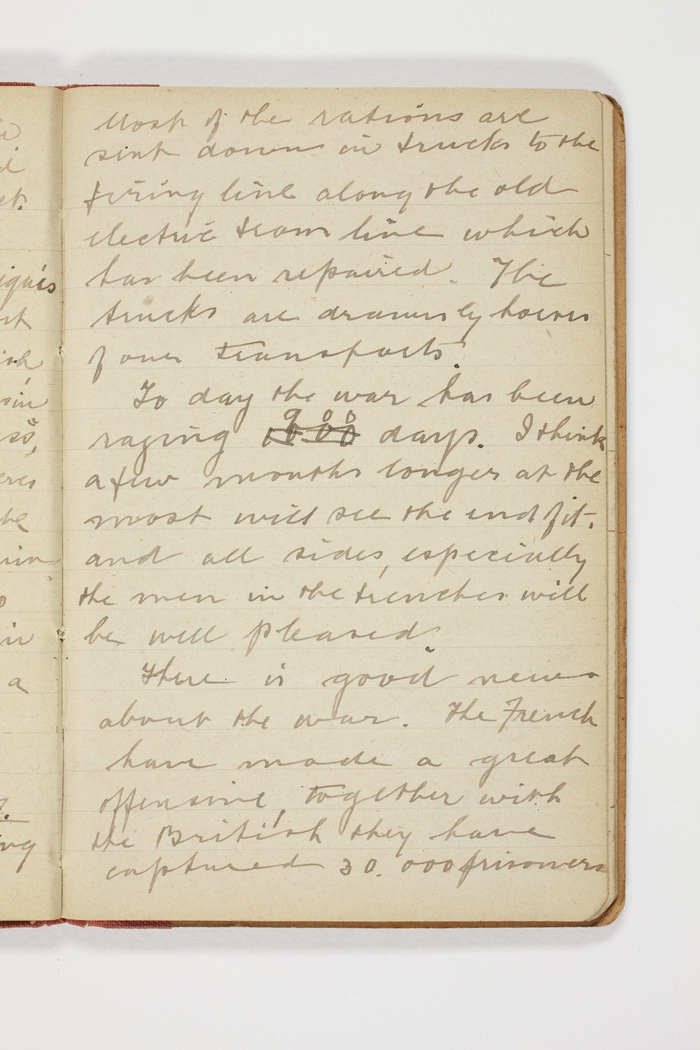 Most of the rations are
sent down in trucks to the
firing line along the old
electric tram line which
has been repaired. The
trucks are drawn by horses
of our transports.
To day the war has been
900
raging 600 days. I think
a few months longer at the
most will see the end of it.
and all sides, especially
the men in the trenches will
be well pleased
There is good news
about the war. The French
have made a great
offensive, together with
the British they have
captured 30.000 prisoners